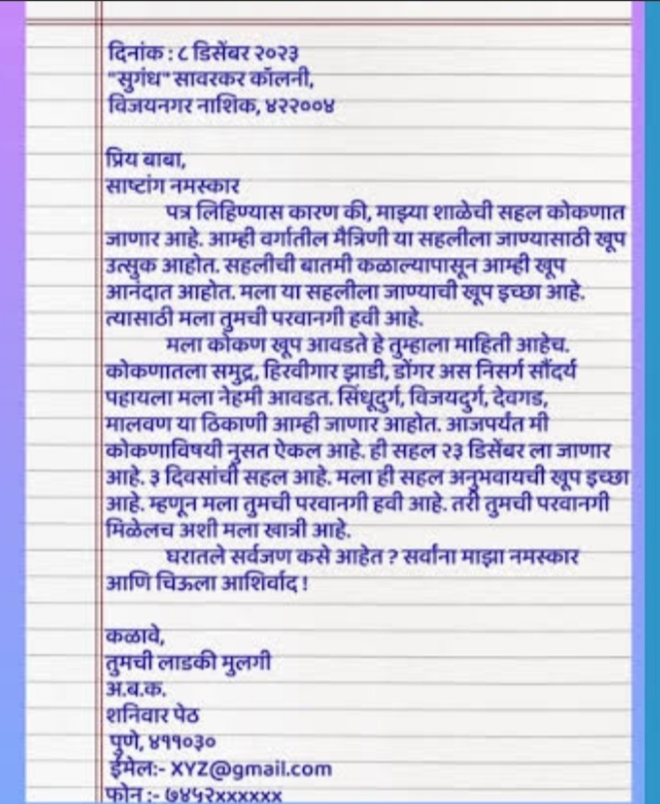 दिनांक : ८ डिसेंबर २०२३
"सुगंध" सावरकर कॉलनी,
विजयनगर नाशिक, ४२२००४
प्रिय बाबा,
साष्टांग नमस्कार
पत्र लिहिण्यास कारण की, माझ्या शाळेची सहल कोकणात
जाणार आहे. आम्ही वर्गातील मैत्रिणी या सहलीला जाण्यासाठी खूप
उत्सुक आहोत. सहलीची बातमी कळाल्यापासून आम्ही खूप
आनंदात आहोत. मला या सहलीला जाण्याची खूप इच्छा आहे.
त्यासाठी मला तुमची परवानगी हवी आहे.
मला कोकण खूप आवडते हे तुम्हाला माहिती आहेच.
कोकणातला समुद्र, हिरवीगार झाडी, डोंगर अस निसर्ग सौंदर्य
पहायला मला नेहमी आवडत. सिंधूदुर्ग, विजयदुर्ग, देवगड,
मालवण या ठिकाणी आम्ही जाणार आहोत. आजपर्यंत मी
कोकणाविषयी नुसत ऐकल आहे. ही सहल २३ डिसेंबर ला जाणार
आहे. ३ दिवसांची सहल आहे. मला ही सहल अनुभवायची खूप इच्छा
आहे. म्हणून मला तुमची परवानगी हवी आहे. तरी तुमची परवानगी
मिळेलच अशी मला खात्री आहे.
घरातले सर्वजण कसे आहेत ? सर्वांना माझा नमस्कार
आणि चिऊला आशिर्वाद !
कळावे,
तुमची लाडकी मुलगी
अ.ब.क.
शनिवार पेठ
पुणे, ४११०३०
ईमेल:- XYZ@gmail.com
फोन :- ७४५२xxxxxx